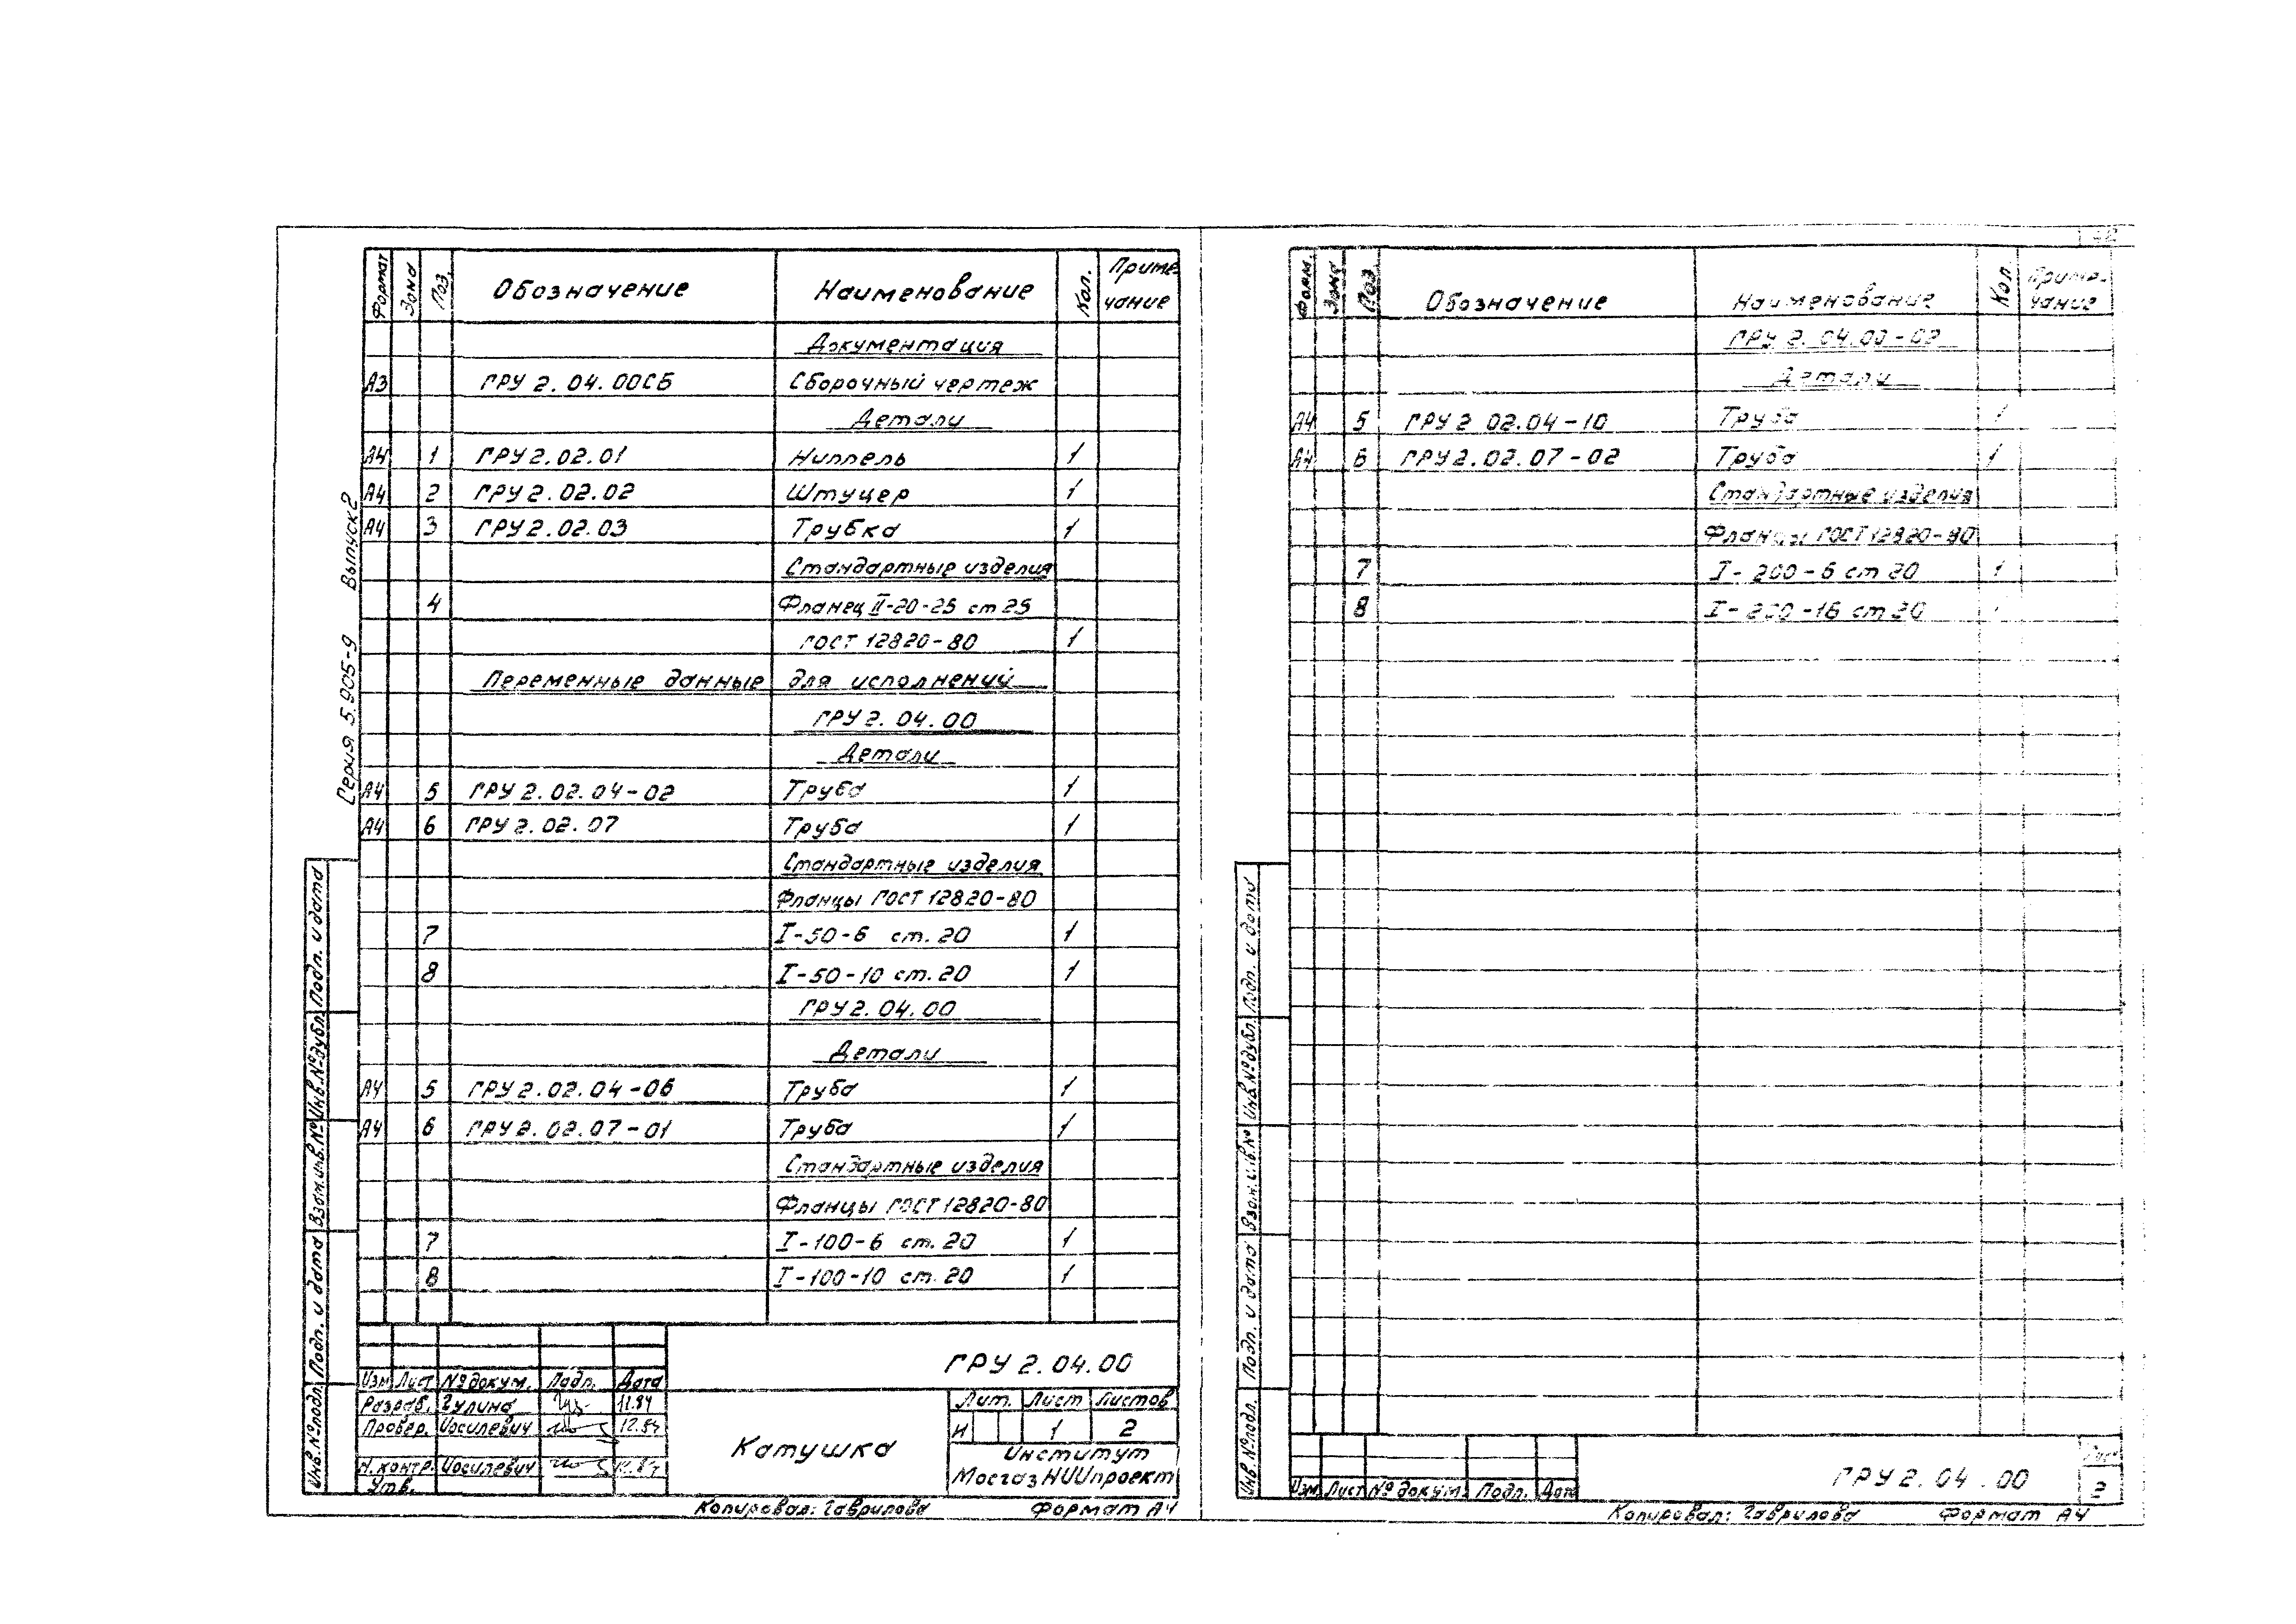 Серия 5.905-9 Выпуск 2
Формат Зона Поз. Обозначение Наименование Кол. Приме
чание
Документация
А3 ГРУ 2. 04. 00СБ Сборочный чертеж
Детали
А4 1 ГРУ 2. 02. 01 Ниппель 1
А4 2 ГРУ 2. 02. 02 Штуцер 1
А4 3 ГРУ 2. 02. 03 Трубка 1
Стандартные изделия
4 Фланец II-20-25 ст 25
ГОСТ 12820-80 1
Переменные данные для исполнений
ГРУ 2. 04. 00
Детали
А4 5 ГРУ 2. 02. 04-02 Труба 1
А4 6 ГРУ 2. 02. 07 Труба 1
Стандартные изделия
Фланцы ГОСТ 12820-80
7 I-50-6 ст. 20 1
8 I-50-10 ст. 20 1
ГРУ 2. 04. 00
Детали
А4 5 ГРУ 2. 02. 04-06 Труба 1
А4 6 ГРУ 2. 02. 07-01 Труба 1
Стандартные изделия
Фланцы ГОСТ 12820-80
7 I-100-6 ст. 20 1
8 I-100-10 ст. 20 1
Подп. и дата
Инв. № дубл.
Взам. инв. №
Подп. и дата
Инв. № подл.
ГРУ 2. 04. 00
Изм Лист № докум. Подп. Дата
Разраб. Гулина 11.84
Провер. Иосилевич 12.84
Н. контр. Иосилевич
Утв.
Катушка
Лит. Лист Листов
И 1 2
Институт
МосгазНИИпроект
Копировал: Гаврилова Формат А4
Форм. Зона Поз. Обозначение Наименование Кол. Приме-
чание
ГРУ 2. 04. 00-02
Детали
А4 5 ГРУ 2 02. 04-10 Труба 1
А4 6 ГРУ 2. 02. 07-02 Труба 1
Стандартные изделия
Фланцы ГОСТ 12820-80
7 I- 200-6 ст 20 1
8 I- 200-16 ст 20
Подп. и дата
Инв. № дубл.
Взам. инв. №
Подп. и дата
Инв. № подл.
Изм Лист № докум. Подп. Дата
ГРУ 2. 04. 00
Лист
2
Копировал: Гаврилова Формат А4